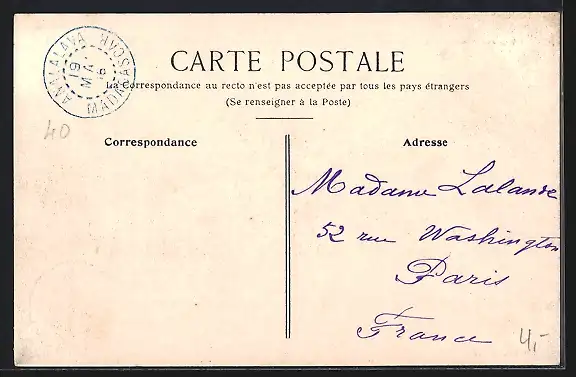 ANALALAVA MADAGASCAR
19
MAI
CARTE POSTALE
La Correspondance au recto n'est pas acceptée par tous les pays étrangers
(Se renseigner à la Poste)
40
Correspondance
Adresse
Madame Lalande
52 rue Washington
Paris
France
4,-